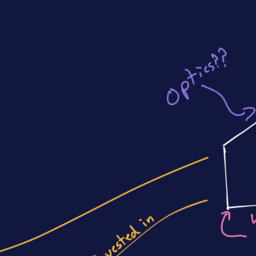 Optics??
vested in